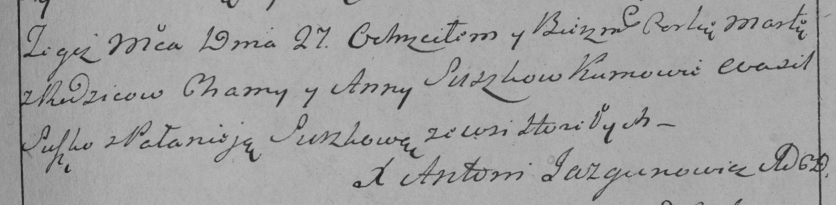 Tegoż Mca Dnia 27. Ochrzciłem y Bierzm Corkę Martę
z Rodzicow Chamy y Anny Suszkow Kumowie Wasil
Suszko z Połanieją Suszkową ze wsi
X Antoni Jazgunowicz